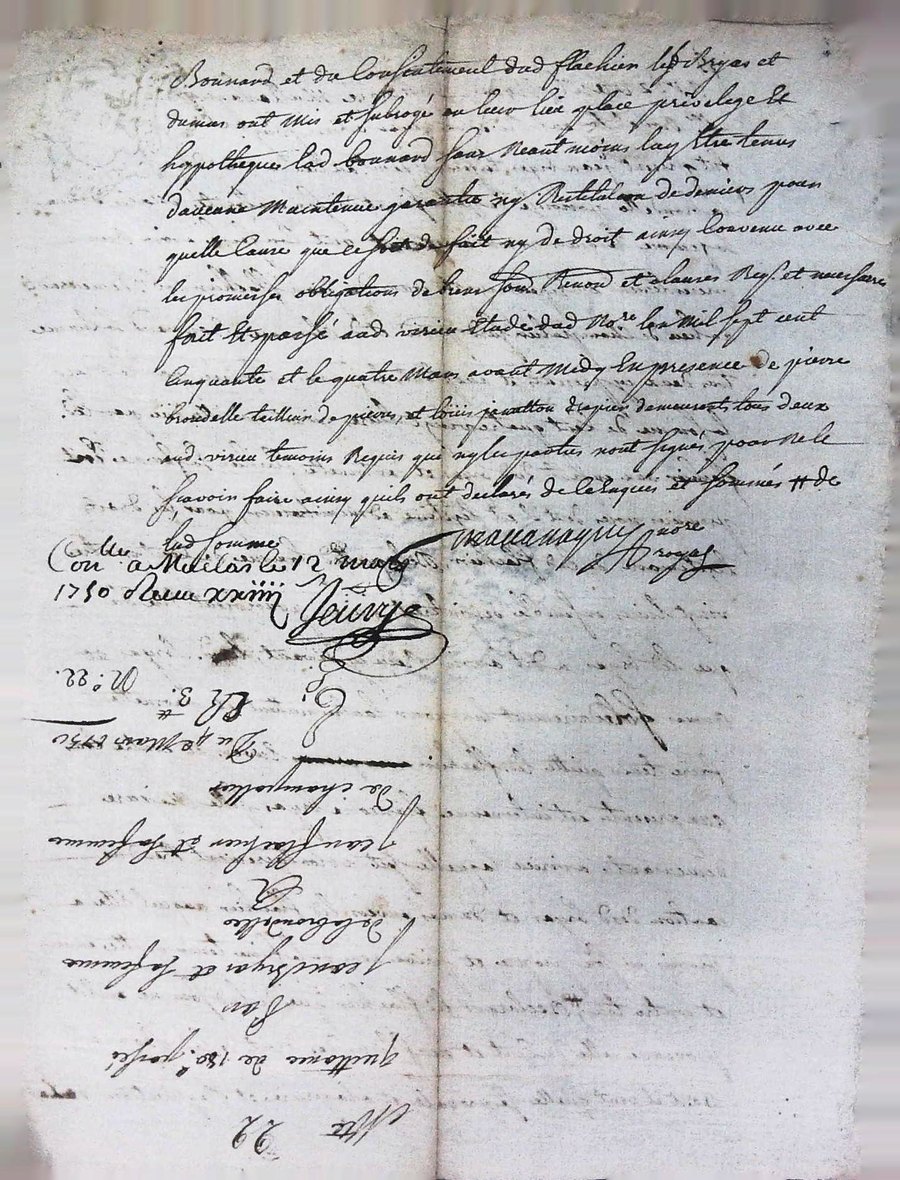 Bonnard et du Consentement dud flachier led Bryas et
dumas ont mis et subrogé en leur lieu place privelege Et
hypotheque lad bonnard sans Neant moins luy Etre tenus
daucune Maintenue garantie ny Restitution de deniers pour
quelle Cause que ce soit de fait ny de droit ainsy Convenu avec
les promesses obligations de biens Renon et clauses Reqs et necessaires
fait Et passé aud virieu Etude dud Nore lan Mil sept cent
Cinquante et le quatre Mars avant Midy En presence de pierre
brondelle tailleur de pierres, et louis pavallon drapier demeurants tous deux
aud. virieu temoins Requis que ny les parties nont signés pour Ne le
scavoir faire ainsy quils ont declarés de ce Enquis et sommés # de
lad somme
nore
royal
Conlle a Malas le 12 mars
1750 Receu xxiiii
Jeury
N.o 22.
3.
Du 4e Mars 1750
de champallier
Jean flachier et sa femme
A
de la brondelles
Jean bryas et sa femme
Par
quittance de 180# passée
22